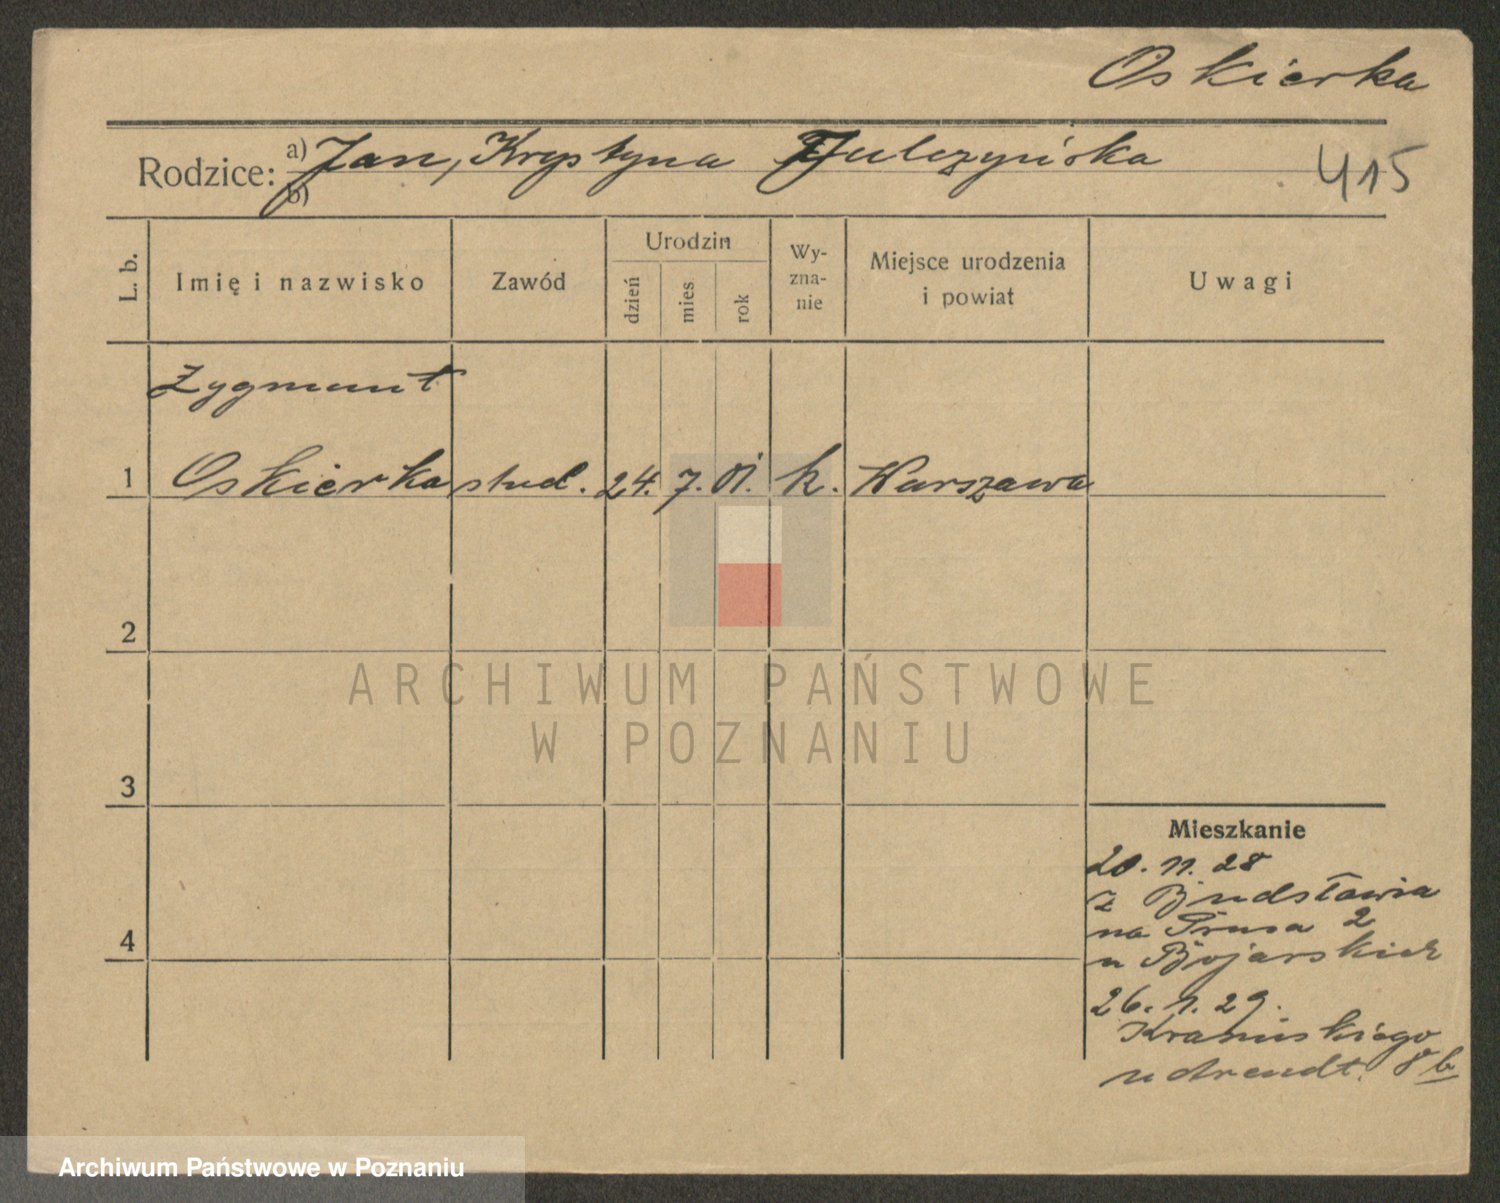 Oskierka
Rodzice: a) Jan, Krystyna
b)
415
L. b.
Imię i nazwisko
Zawód
Urodzin
dzień
mies
rok
Wy-
zna-
nie
Miejsce urodzenia
i powiat
Uwagi
Zygmunt
1 Oskierka stud. 24. 7. 01. k. Warszawa
2
3
4
Mieszkanie
20. 11. 28
z Budsławia
na Prusa 2
u Bojarskich
26. 1. 29.
8 b
ARCHIWUM PAŃSTWOWE
W POZNANIU
Archiwum Państwowe w Poznaniu